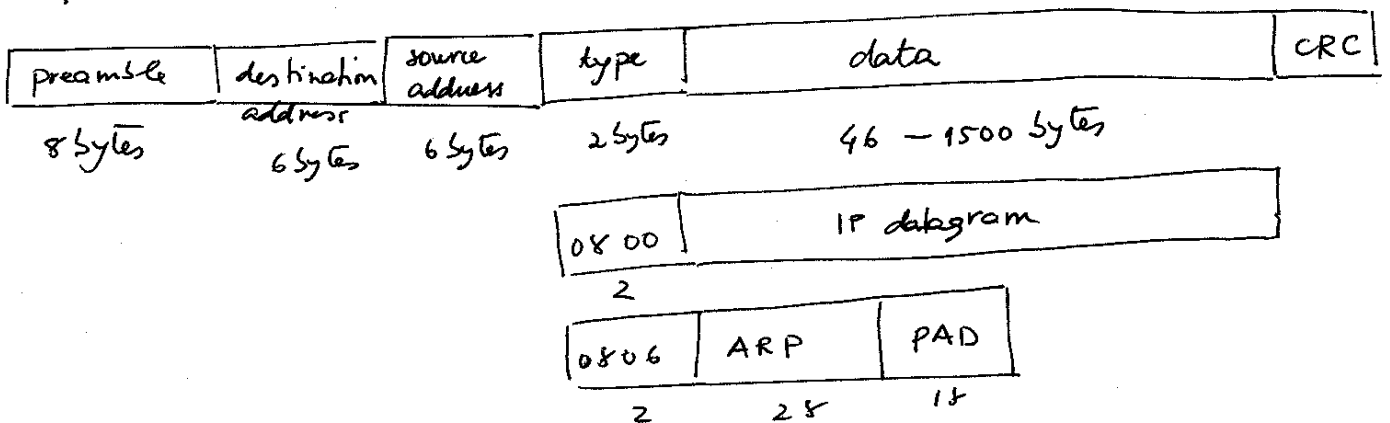 preamble destination address source address type data CRC
8 bytes 6 bytes 6 bytes 2 bytes 46 – 1500 bytes
0800 IP datagram
2
0806 ARP PAD
2 28 18